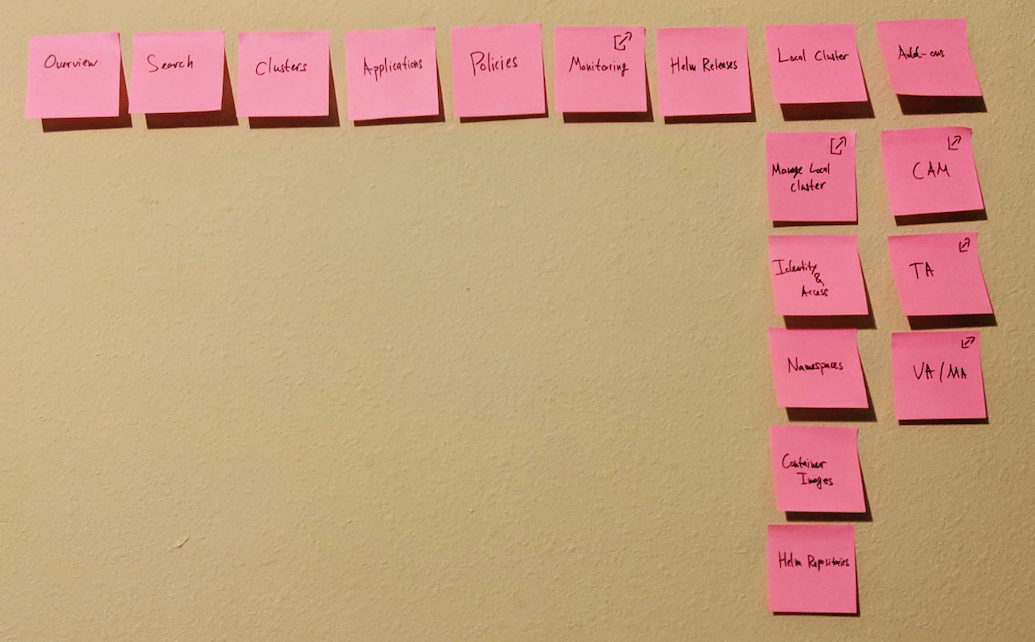 Overview
Search
Clusters
Applications
Policies
Monitoring
Helm Releases
Local Cluster
Add-ons
Manage Local
Cluster
Identity
&
Access
Namespaces
Container
Images
Helm Repositories
CAM
TA
VA/MA